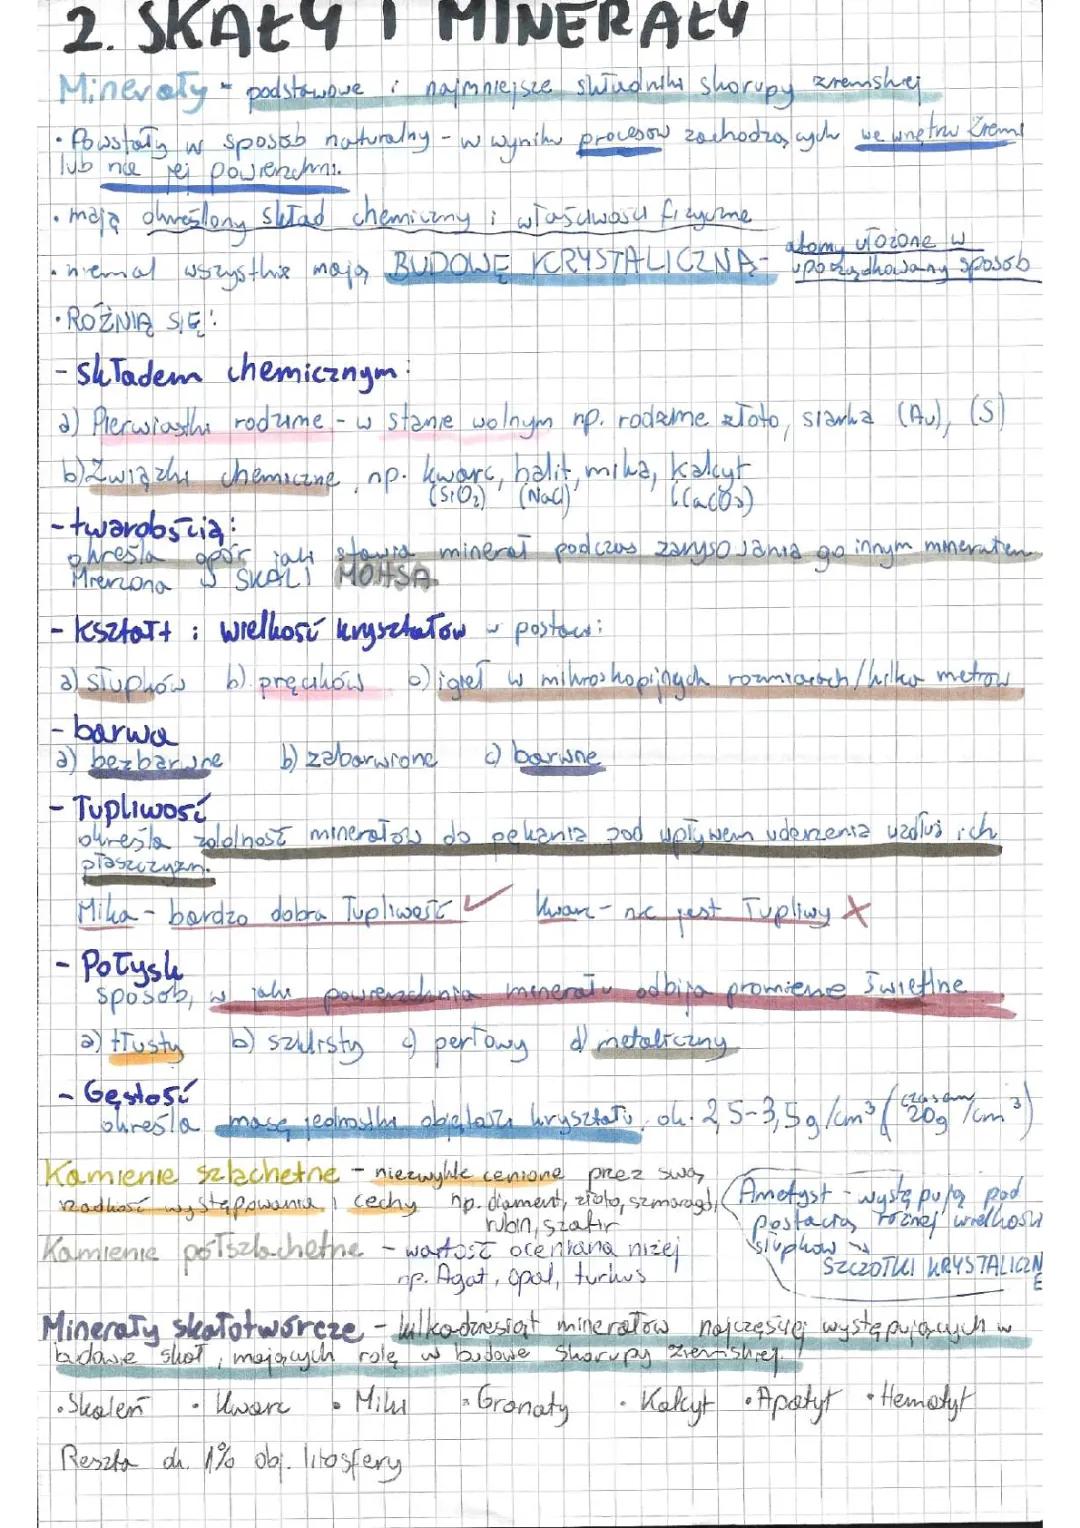 2. SKAŁY I MINERAŁY
Minerały - podstawowe i najmniejsze składniki skorupy ziemskiej
• Powstały w sposób naturalny - w wyniku procesów zachodzących we wnętrzu Ziemi
lub na jej powierzchni.
• mają określony skład chemiczny i właściwości fizyczne
• niemal wszystkie mają BUDOWĘ KRYSTALICZNĄ - atomy ułożone w
uporządkowany sposób
• RÓŻNIĄ SIĘ:
- składem chemicznym:
a) Pierwiastki rodzime - w stanie wolnym np. rodzime złoto, siarka (Au), (S)
b) Związki chemiczne, np. kwarc, halit, mika, kalcyt
(SiO₂) (NaCl) (CaCO₃)
- twardością:
określa opór jaki stawia minerał podczas zarysowania go innym minerałem
Mierzona w SKALI MOHSA
- kształt i wielkość kryształów w postaci:
a) słupków b) pręcików c) igieł w mikroskopijnych rozmiarach/kilka metrów
- barwa
a) bezbarwne b) zabarwione c) barwne
- Łupliwość
określa zdolność minerałów do pękania pod wpływem uderzenia wzdłuż ich
płaszczyzn.
Mika - bardzo dobra łupliwość ✓ Kwarc - nie jest łupliwy X
- Połysk
sposób, w jaki powierzchnia minerału odbija promienie świetlne
a) tłusty b) szklisty c) perłowy d) metaliczny
- Gęstość
określa masę jednostki objętości kryształu, ok. 2,5-3,5g/cm³ (czasami 20g/cm³)
Kamienie szlachetne - niezwykle cenione przez swą
rzadkość występowania i cechy np. diament, złoto, szmaragd,
rubin, szafir
Ametyst - występują pod
postacią różnej wielkości
słupków →
SZCZOTKI KRYSTALICZNE
Kamienie półszlachetne - wartość oceniana niżej
np. Agat, opal, turkus
Minerały skałotwórcze - kilkadziesiąt minerałów najczęściej występujących w
budowie skał, mających rolę w budowie skorupy ziemskiej
• Skaleń • Kwarc • Miki • Granaty • Kalcyt • Apatyt • Hematyt
Reszta ok. 1% obj. litosfery